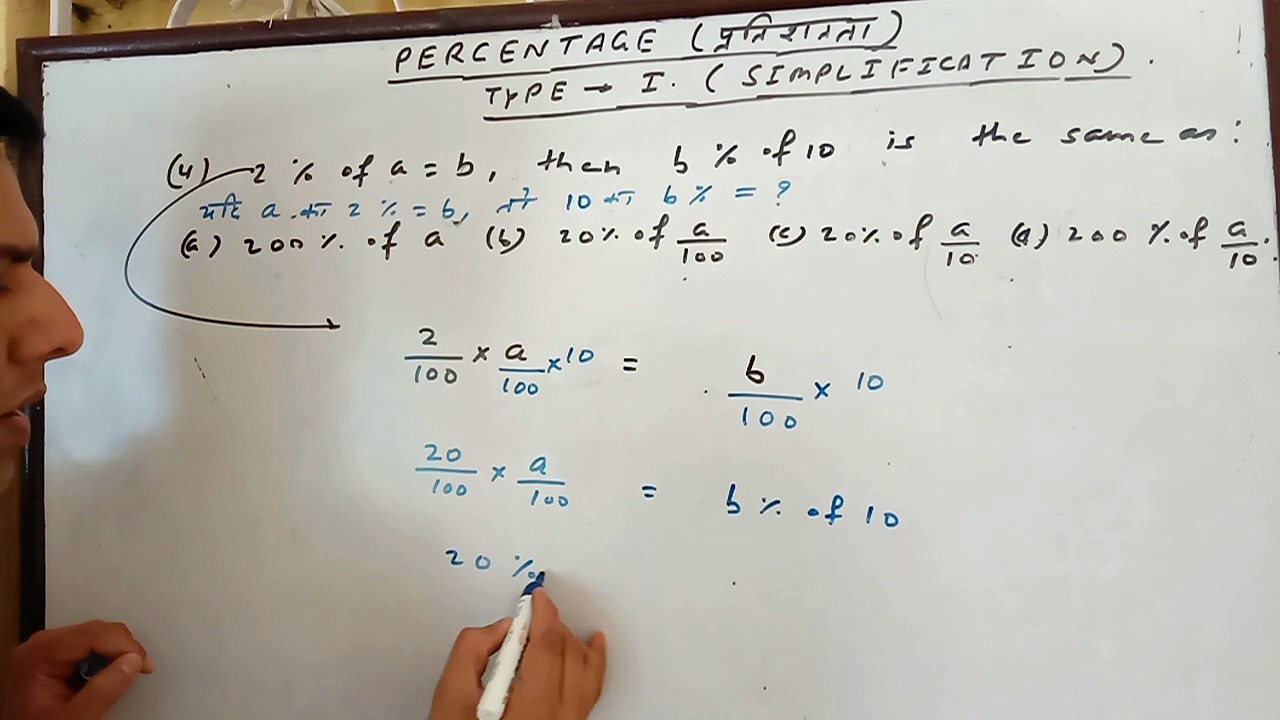 PERCENTAGE (प्रतिशतता)
TYPE → I. (SIMPLIFICATION).
(4) 2 % of a = b, then b % of 10 is the same as:
यदि a का 2 % = b, तो 10 का b % = ?
(a) 200 %. of a (b) 20% of a/100 (c) 20% of a/10 (d) 200 % of a/10.
2/100 × a/100 × 10 = b/100 × 10
20/100 × a/100 = b % of 10
20 %